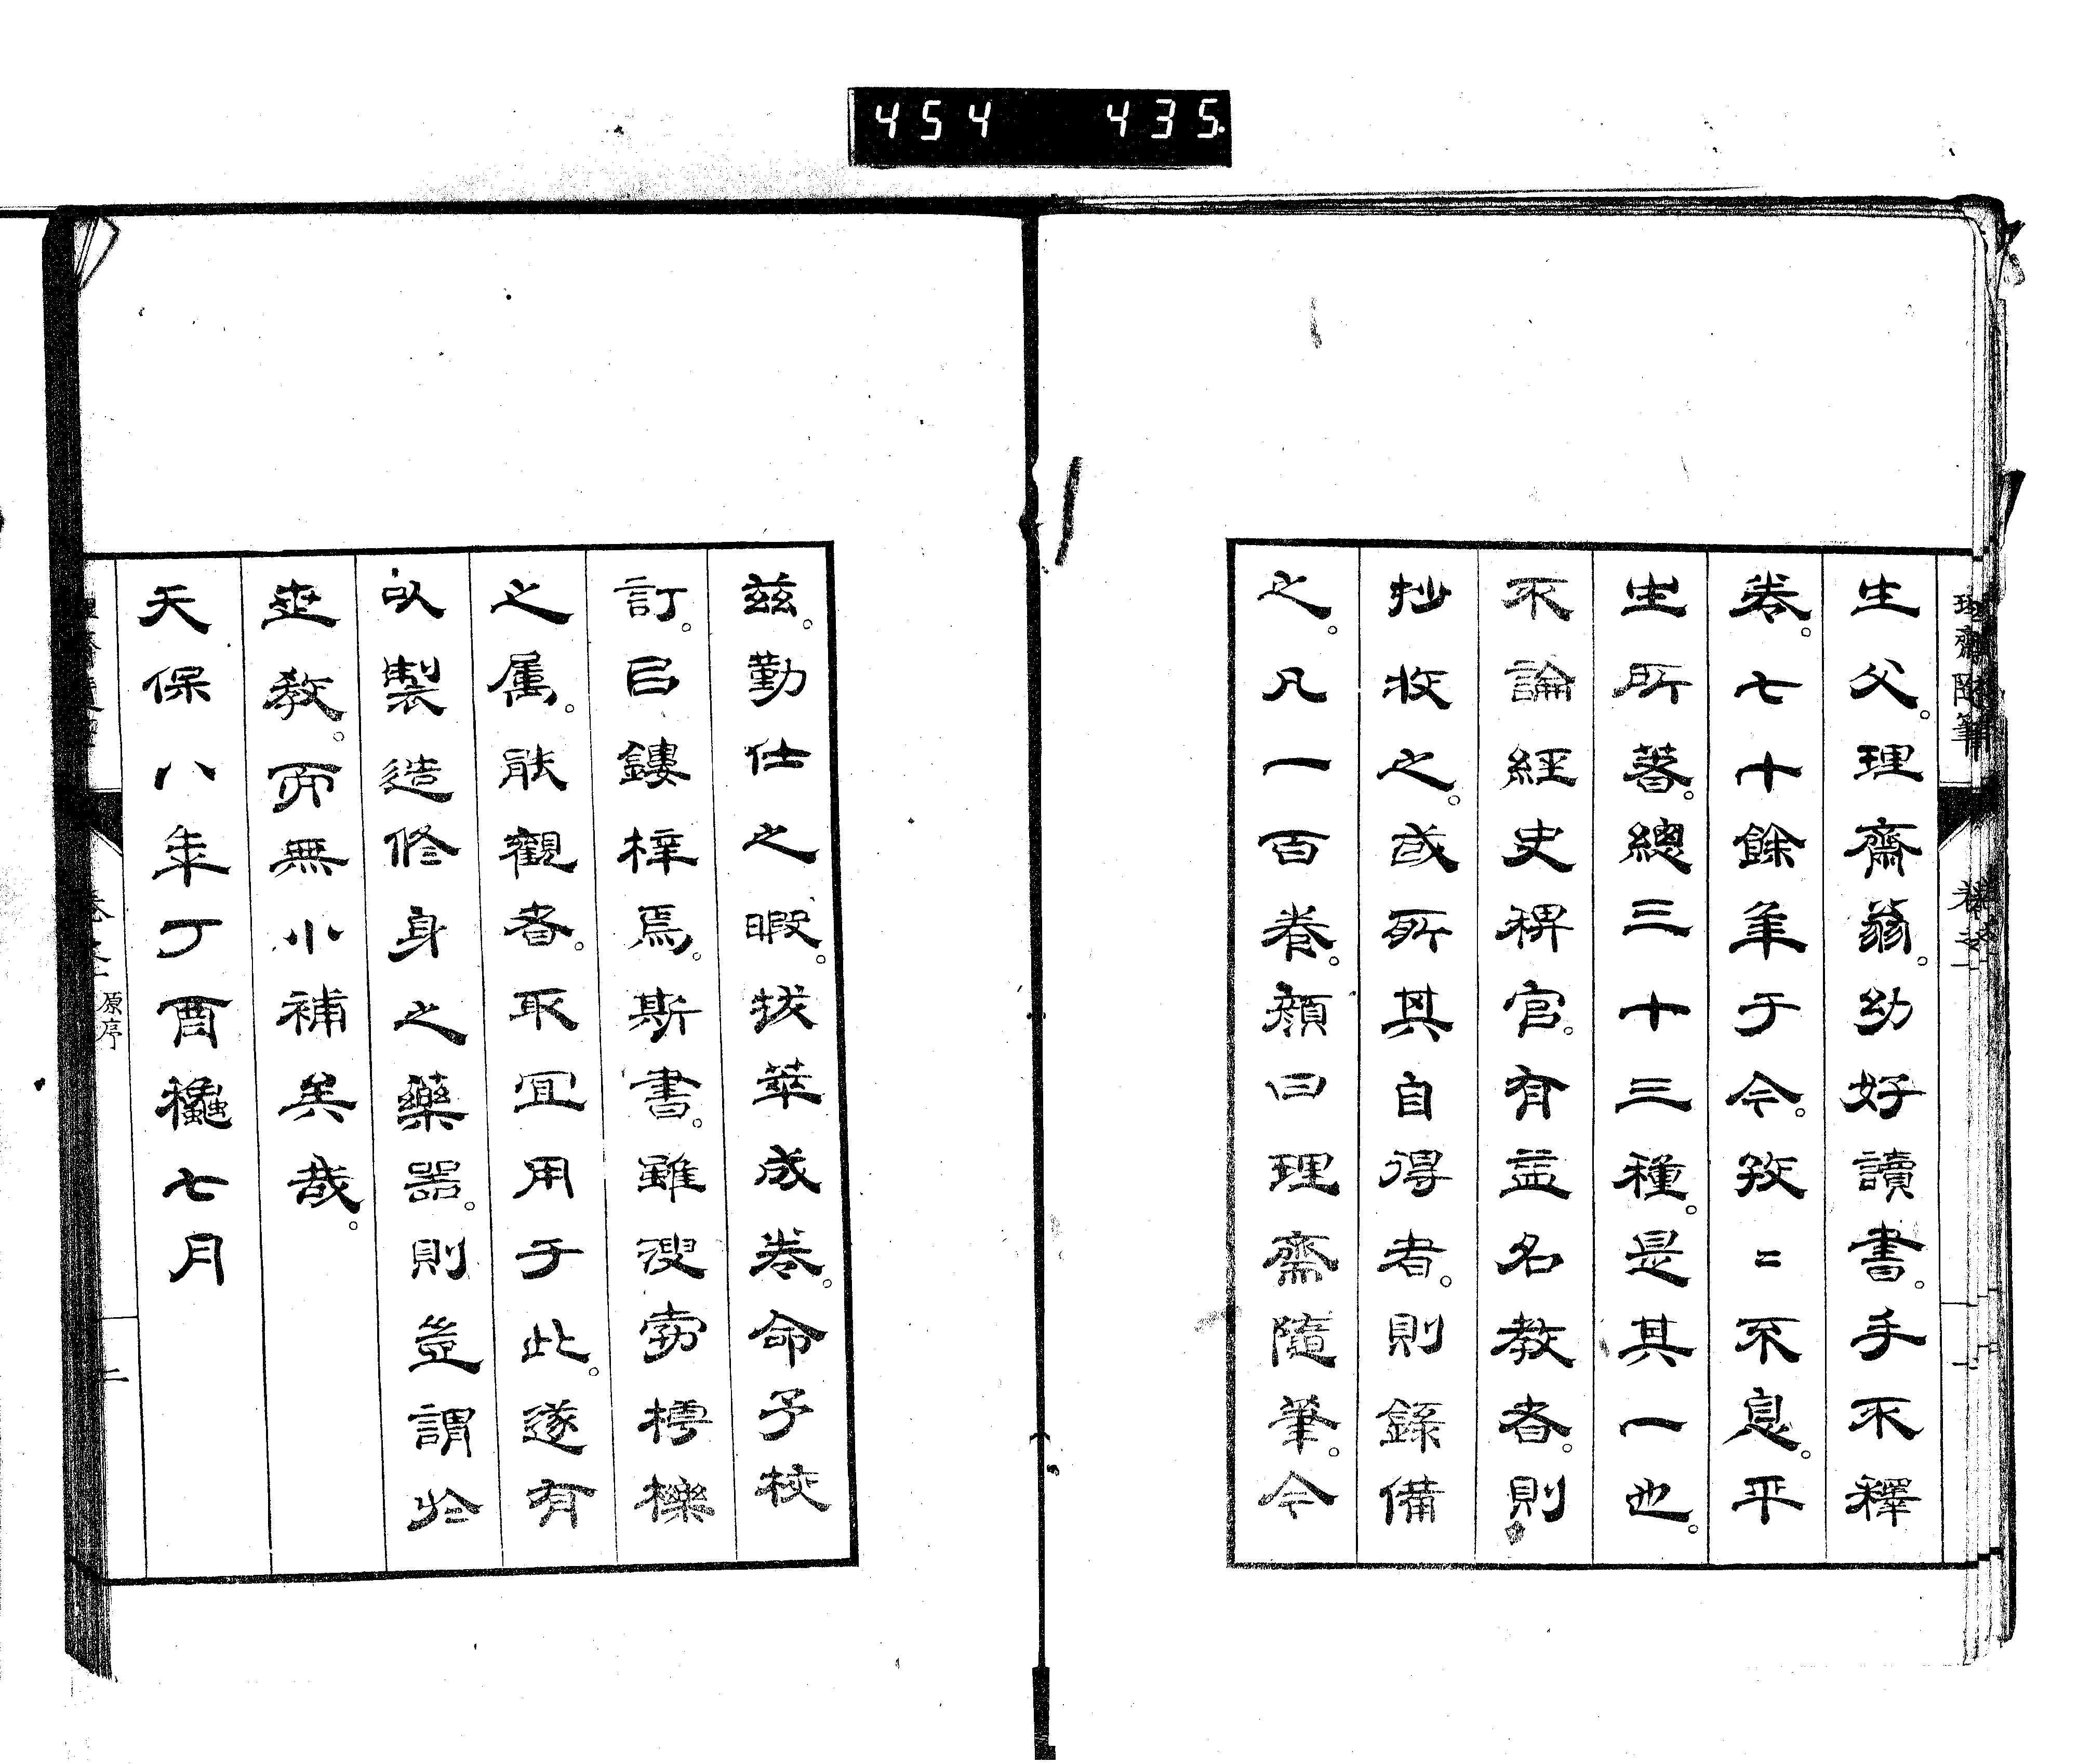 454 435
理齋隨筆 卷之一 一
生父。理齋翁。幼好讀書。手不釋
卷。七十餘年于今。孜〻不息。平
生所著。總三十三種。是其一也。
不論經史稗官。有益名教者。則
抄收之。或所其自得者。則錄備
之。凡一百卷。顏曰理齋隨筆。今
茲。勤仕之暇。拔萃成卷。命子校
訂。㠯鏤梓焉。斯書。雖溲勃樗櫟
之属。能觀者。取宜用于此。遂有
以製造修身之藥器。則豈謂於
世教。而無小補矣哉。
天保八年丁酉龝七月
原序 二